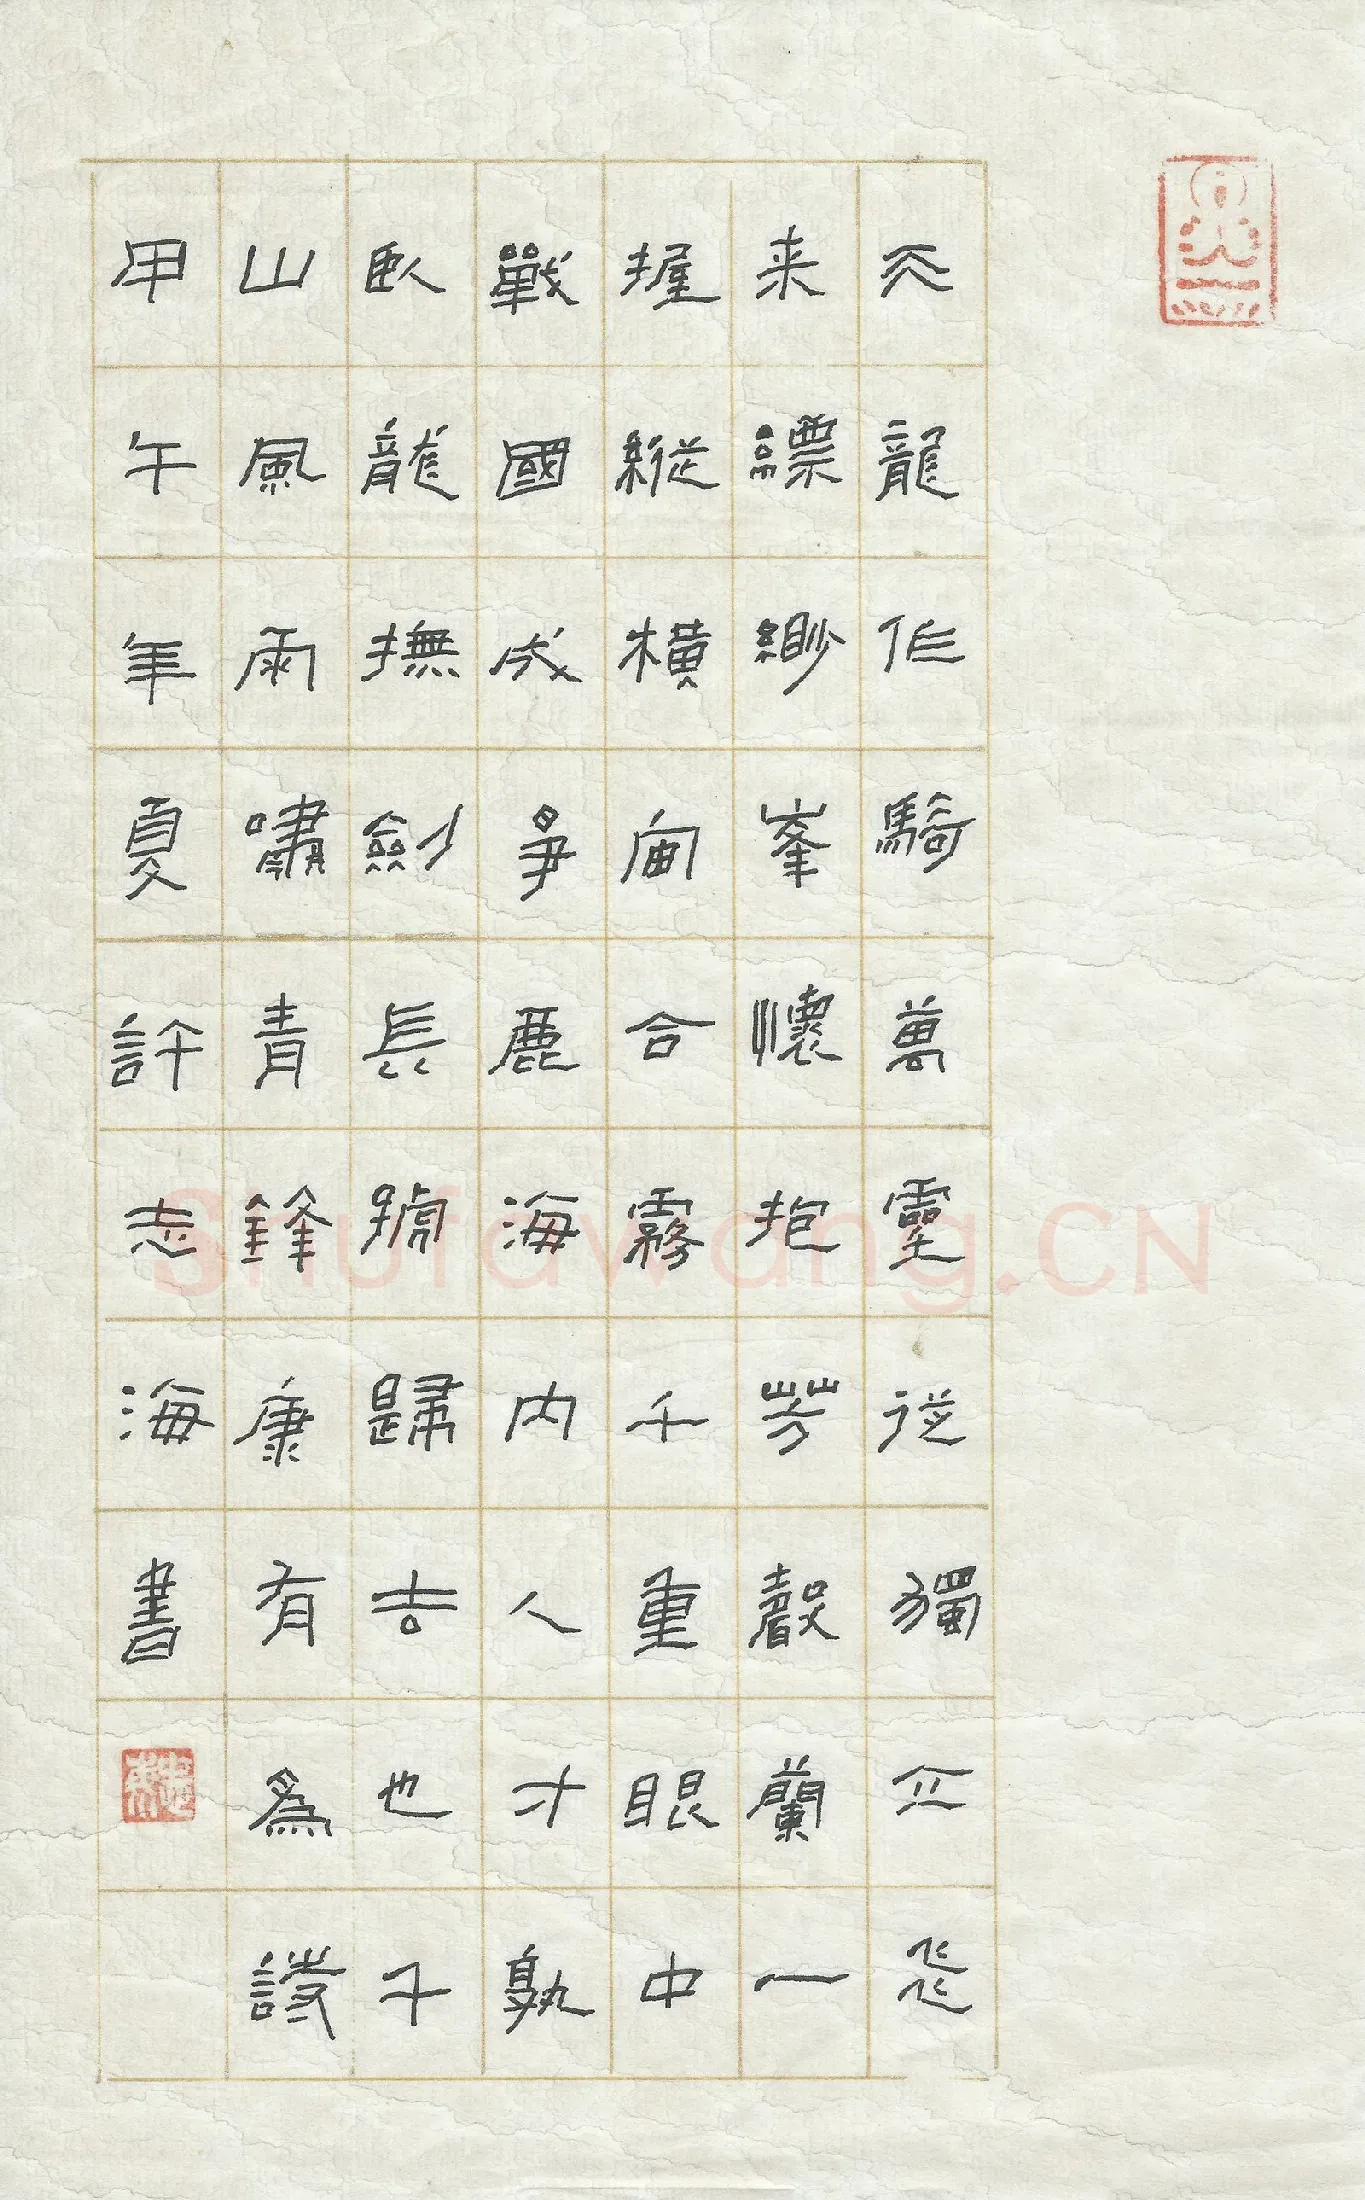 天龍作騎萬靈從獨立飛
来縹緲峯懷抱芳馨蘭一
握縱橫宙合霧千重眼中
戰國成爭鹿海内人才孰
臥龍撫劍長號歸去也千
山風雨嘯青鋒康有為詩
甲午年夏許志海書
Shufawang.CN